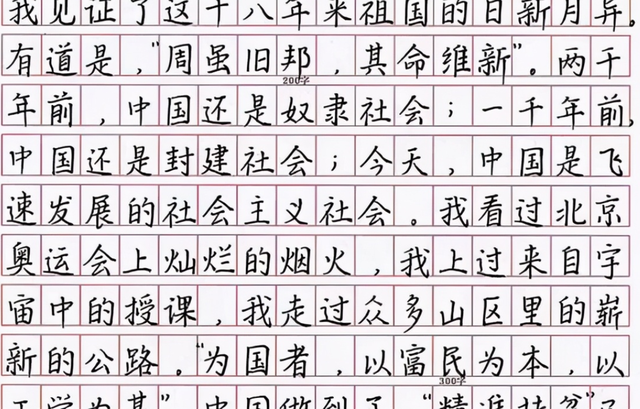 我见证了这十八年来祖国的日新月异。
有道是，“周虽旧邦，其命维新”。两千
200字
年前，中国还是奴隶社会；一千年前，
中国还是封建社会；今天，中国是飞
速发展的社会主义社会。我看过北京
奥运会上灿烂的烟火，我上过来自宇
宙中的授课，我走过众多山区里的崭
新的公路。“为国者，以富民为本，以
300字
学为基”，中国做到了，“精准扶贫”